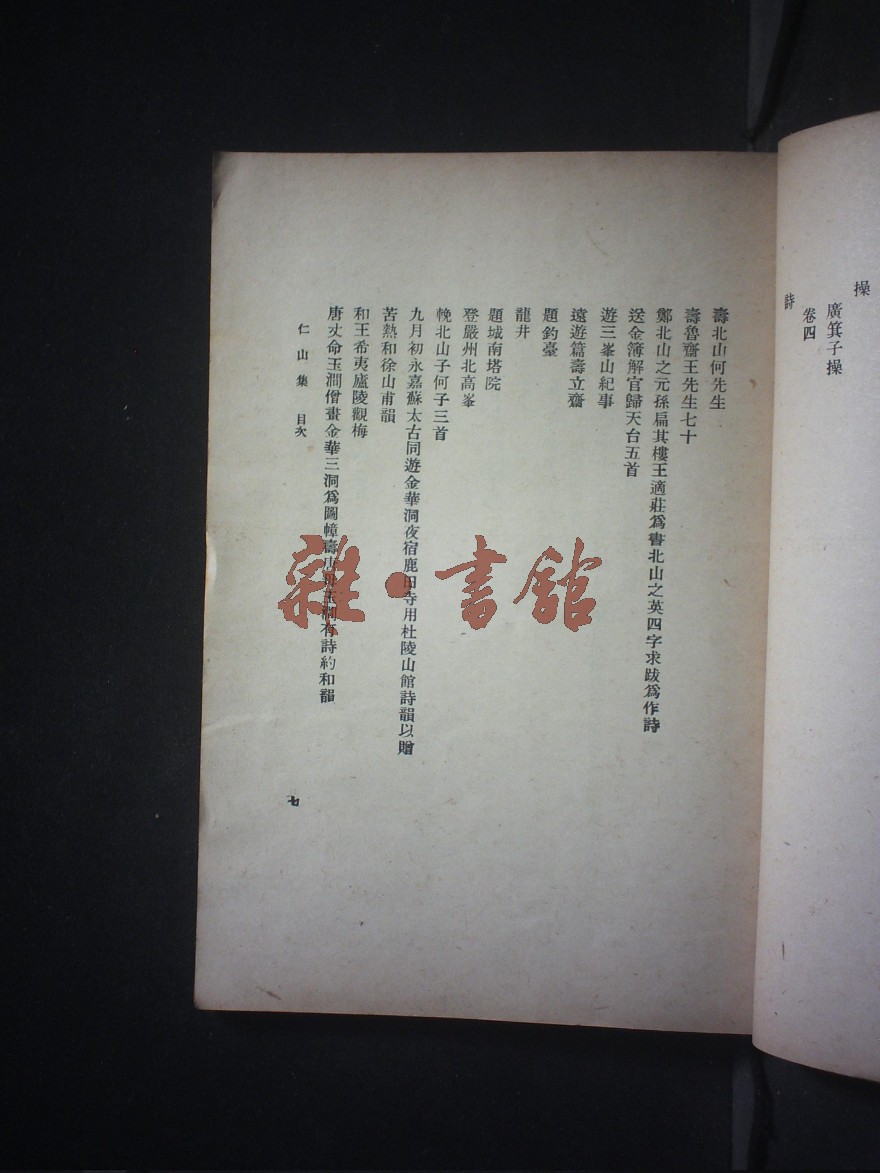 操
廣箕子操
卷四
詩
壽北山何先生
壽魯齋王先生七十
鄭北山之元孫扁其樓王適莊爲書北山之英四字求跋爲作詩
送金簿解官歸天台五首
遊三峯山紀事
遠遊篇壽立齋
題釣臺
龍井
題城南塔院
登嚴州北高峯
輓北山子何子三首
九月初永嘉蘇太古同遊金華洞夜宿鹿田寺用杜陵山館詩韻以贈
苦熱和徐山甫韻
和王希夷廬陵觀梅
唐丈命玉澗僧畫金華三洞爲圖幛壽唐母玉澗有詩約和韻
仁山集 目次
七
雜·書館